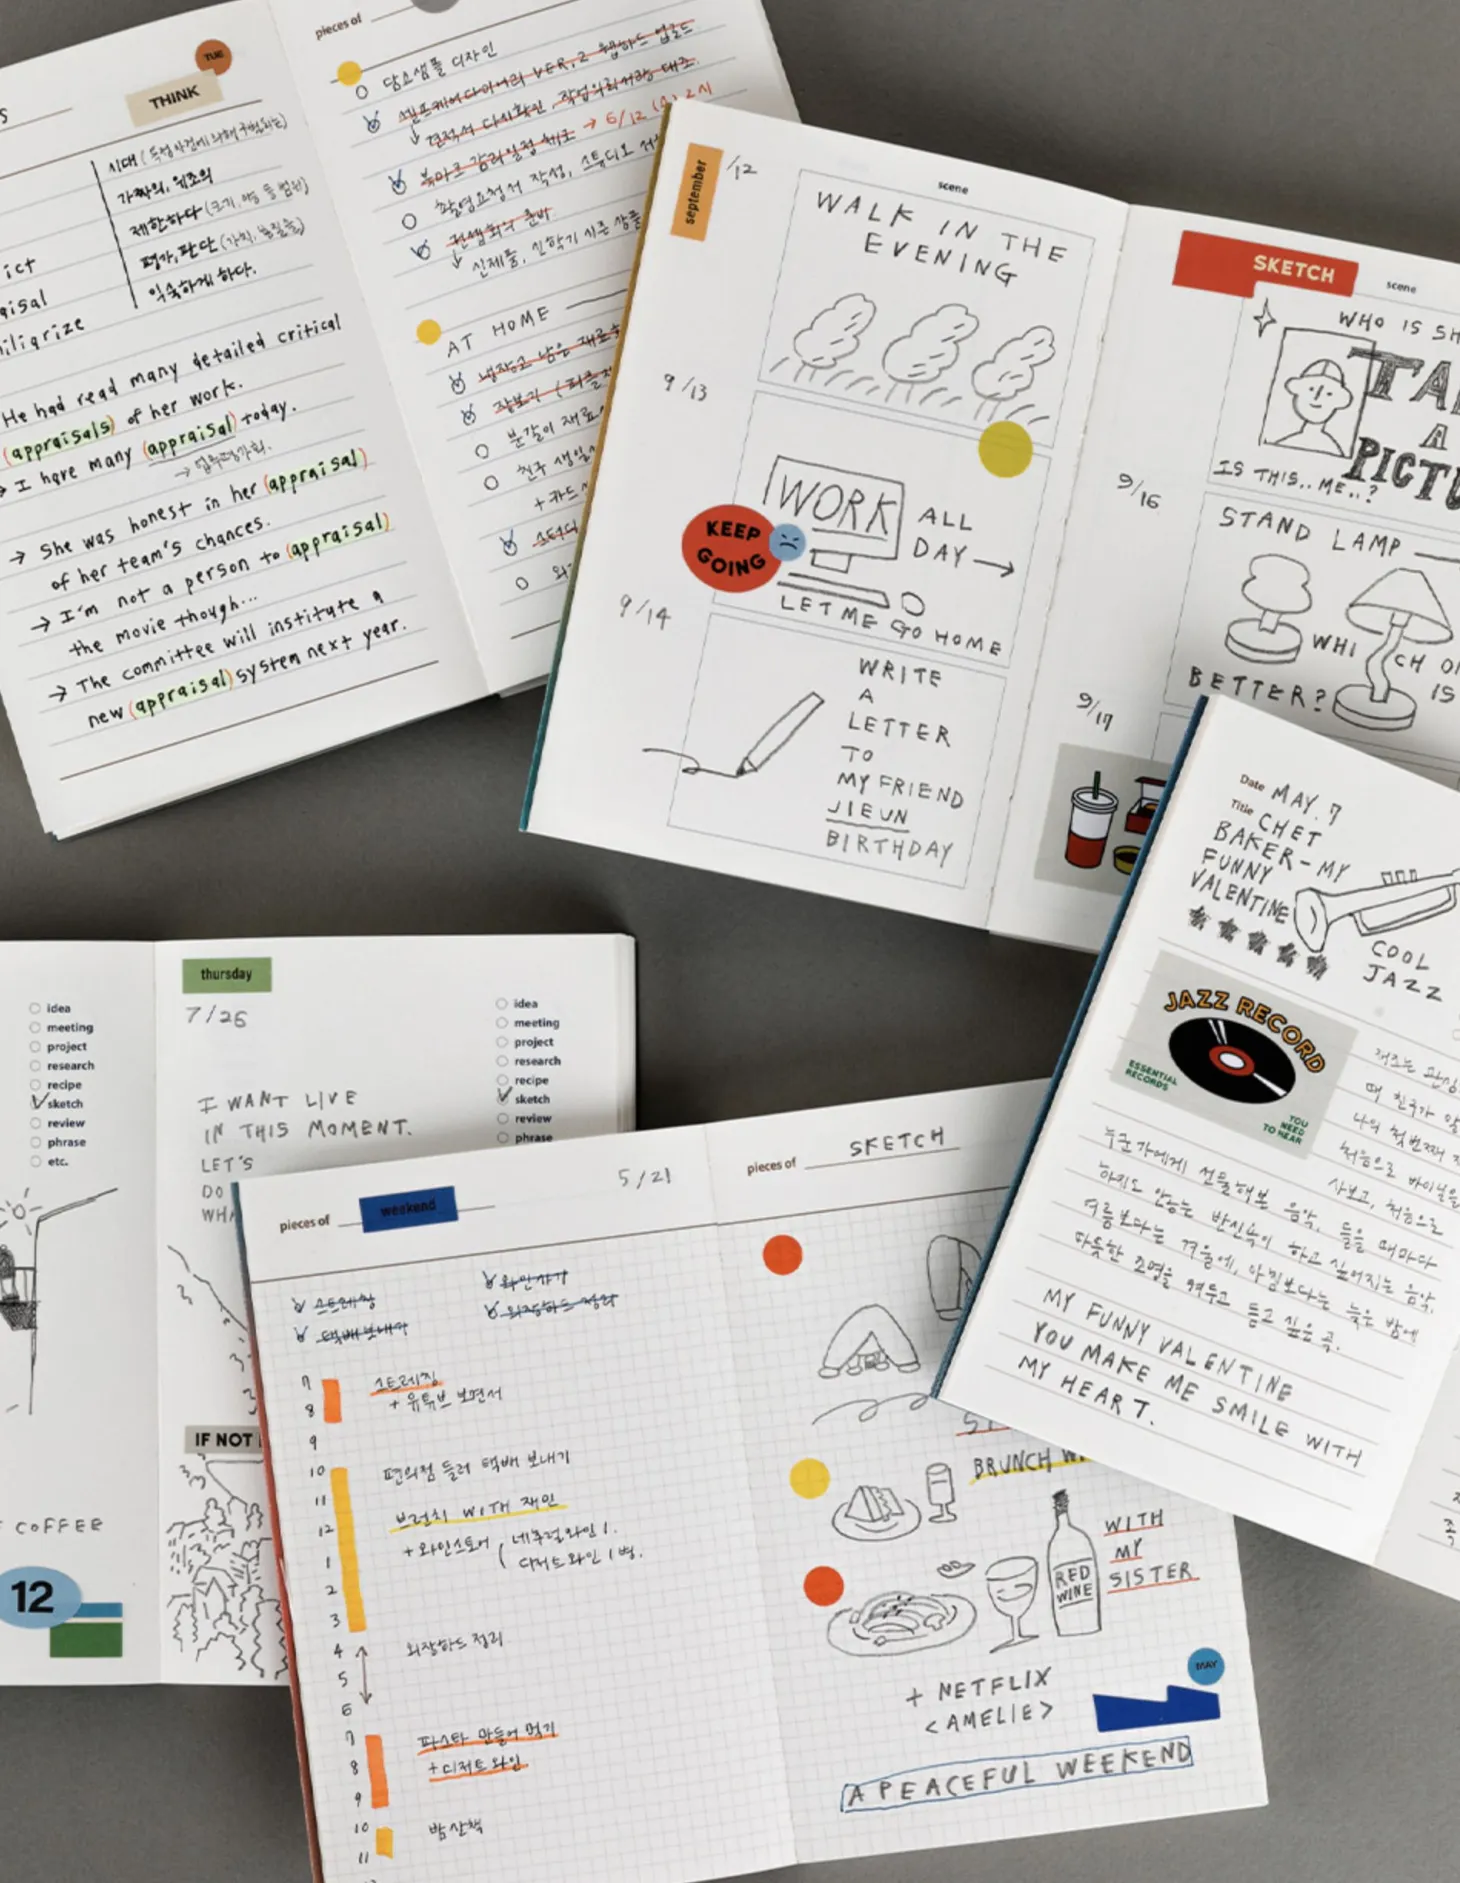 TUE
THINK
시대 (특정 사건에 의해 구별되는)
가짜의, 위조의
제한하다 (크기, 양 등 범위)
평가, 판단 (가치, 품질 등)
익숙하게 하다.
ict
aisal
iliarize
He had read many detailed critical
(appraisals) of her work.
→ I have many (appraisal) today.
→ She was honest in her (appraisal)
of her team's chances.
→ I'm not a person to (appraisal)
the movie though...
→ The committee will institute a
new (appraisal) system next year.
pieces of
담요샘플 디자인
셀프케어다이어리 VER.2 웹하드 업로드
견적서 다시확인, 작업의뢰서랑 대조.
북마크 감리일정 체크 → 6/12 (수) 2시
촬영요청서 작성, 스튜디오
컨셉회의 준비
신제품, 신학기 시즌 상품
AT HOME
냉장고 남은 재료
장보기
분갈이 재료
친구 생일
+ 카드
september
/12
scene
WALK IN THE
EVENING
9/13
WORK
ALL
DAY →
KEEP
GOING
LET ME GO HOME
9/14
WRITE
A
LETTER
TO
MY FRIEND
JIEUN
BIRTHDAY
SKETCH
scene
WHO IS SH
TA
A
PICTU
IS THIS.. ME..?
9/16
STAND LAMP
WHICH O
IS
BETTER?
9/17
Date MAY. 7
Title CHET
BAKER - MY
FUNNY
VALENTINE
COOL
JAZZ
JAZZ RECORD
ESSENTIAL
RECORDS
YOU
NEED
TO HEAR
때 친구가
나의 첫번째
처음으로 바이닐을
사보고, 처음으로
누군가에게 선물해본 음악. 들을 때마다
하기도 안하는 반신욕이 하고 싶어지는 음악.
여름보다는 겨울에, 아침보다는 늦은 밤에
따듯한 조명을 켜두고 듣고 싶은 곡.
MY FUNNY VALENTINE
YOU MAKE ME SMILE WITH
MY HEART.
idea
meeting
project
research
recipe
sketch
review
phrase
etc.
COFFEE
12
thursday
7/26
idea
meeting
project
research
recipe
sketch
review
phrase
I WANT LIVE
IN THIS MOMENT.
LET'S
DO
WHA
IF NOT
pieces of weekend
5/21
스트레칭
택배 보내기
와인사기
외장하드 정리
7
8
9
10
11
12
1
2
3
4
5
6
7
8
9
10
11
스트레칭
+ 유튜브 보면서
편의점 들러 택배 보내기
브런치 WITH 재인
+ 와인스토어 ( 네추럴와인 1.
디저트와인 1병.
외장하드 정리
파스타 만들어 먹기
+ 디저트와인
밤산책
pieces of SKETCH
BRUNCH W
RED
WINE
WITH
MY
SISTER
+ NETFLIX
<AMELIE>
MAY
A PEACEFUL WEEKEND